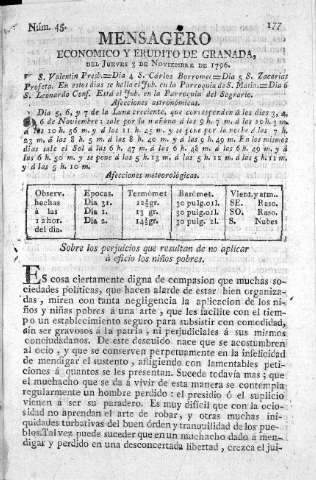 Núm. 45. 177
MENSAGERO
ECONOMICO Y ERUDITO DE GRANADA,
DEL JUEVES 3 DE NOVIEMBRE DE 1796.
S. Valentin Presb.=Dia 4 S. Cárlos Borromeo=Dia 5 S. Zacarias
Profeta. En estos dias se halla el Jub. en la Parroquia de S. Matin.=Dia 6
S. Leonardo Conf. Está el Jub. en la Parroquia del Sagrario.
Afecciones astronómicas.
Dia 5, 6, y 7 de la Luna creciente, que corresponden á los dias 3, 4,
6 de Noviembre: sale por la mañana á las 9 h. 7 m. á las 10 h. 3 m.
á las 10 h. 56 m. y á las 11 h. 45 m. y se pone por la noche á las 7 h.
23 m. á las 8 h. 5 m. á las 8 h. 40 m. y á las 9 h. 49 m. En los mismos
dias sale el Sol á las 6 h. 47 m. á las 6 h. 48 m. á las 6 h. 49 m. y á
las 6 h. 50 m. y se pone á las 5 h. 13 m. á las 5 h. 12 m. á las 5 h. 11 m.
y á las 5 h. 10 m.
Afecciones meteorológicas.
Observ. Epocas. Termómet Barómet. Vient. y atm.
hechas Dia 31. 12½gr. 30 pulg. 01l. SE. Raso.
á las Dia 1. 13 gr. 30 pulg. 01l. SO. Raso.
12 hor. Dia 2. 14½gr. 30 pulg. 2l. S. Nubes
del dia.
Sobre los perjuicios que resultan de no aplicar
á oficio los niños pobres.
ES cosa ciertamente digna de compasion que muchas so-
ciedades políticas, que hacen alarde de estar bien organiza-
das, miren con tanta negligencia la aplicacion de los ni-
ños y niñas pobres á una arte, que les facilite con el tiem-
po un establecimiento seguro para subsistir con comodidad,
sin ser gravosos á la patria, ni perjudiciales á sus mismos
conciudadanos. De este descuido nace que se acostumbren
al ocio, y que se conserven perpetuamente en la infelicidad
de mendigar el sustento, afligiendo con lamentables peti-
ciones á quantos se les presentan. Sucede todavia mas; que
el muchacho que se dá á vivir de esta manera se contempla
regularmente un hombre perdido: el presidio ó el suplicio
vienen á ser su paradero. Es muy dificil que con la ocio-
sidad no aprendan el arte de robar, y otras muchas ini-
quidades turbativas del buen órden y tranquilidad de los pue-
blos. Tal vez puede suceder que en un muchacho dado á men-
digar y perdido en una desconcertada libertad, crezca el jui-